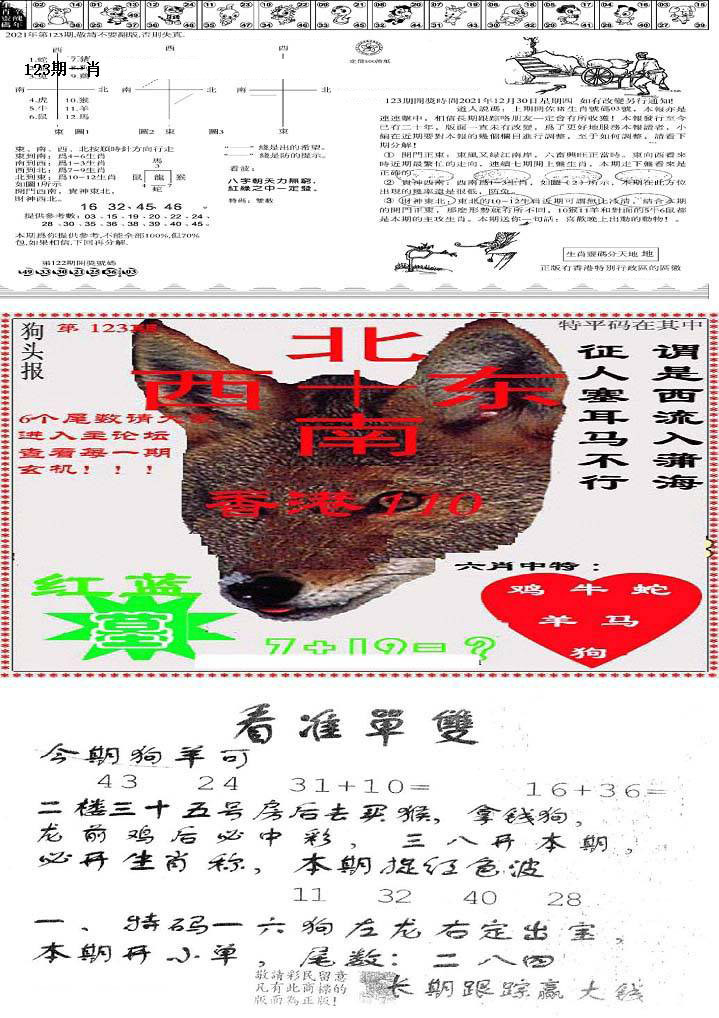 2021年第123期,敬請不要翻版,否則失真.
123期一肖
西
西
西
南
北
南
北
南
北
4.虎 10.猴
5.牛 11.羊
6.鼠 12.馬
東 圖1
圖2 東
圖3 東
東、南、西、北按順時針方向行走
東到南：爲4~6生肖
南到西：爲1~3生肖
西到北：爲7~9生肖
北到東：爲10~12生肖
如圖1所示
開門西南，貴神東北，
財神西北。
馬
3
鼠 龍 猴
4
蛇 7
16 32 45 46
提供参考數：03．15．19．20．22．24．
28．30．35．36．38．39．40．45。
本期爲你提供參考,不能全部100%,但70%
包,如果相信,下回再分解.
第122期開獎號碼
49 33 30 21 25 36 03
綫是出的希望。
綫是防的提示。
看波：
八字朝天力無窮，
紅綠之中一定發。
特尚：雙數
123期開獎時間2021年12月30日星期四 如有改變另行通知!
道人說碼：上期開佐猪生肖號碼03號。本報亦是
連連擊中，相信長期跟踪咯朋友一定會有所收獲！本報發行至今
已有二十年，版面一直未有改變，爲了更好地服務本報讀者，小
編在近期要對本報的幾個欄目進行調整。至于如何調整，請看下
期分解！
① 開門正東，東風又绿江南岸。六畜興旺正當時。東向西看來
時近期最繁忙的走向。連續七期開上盤生肖。本期走下盤看來是
正確的。
② 貴神西南，西南爲1~3生肖，如圖（2）所示，本期在此方位
出現的幾率還是很低，防克。
③ 財神東北，東北的10~12生肖近期可謂無比冷清，結合本期
的開門正東，那麼形勢就有所不同。10猴11羊和對面的5牛6鼠都
是本期的主攻生肖。本期送你一句話：喜歡晚上出動的動物！。
生肖靈碼分天地 地
正版有香港特别行政區的區徽
狗头报
第 123期
特平码在其中
北
西 十 东
南
谓是西流入蒲海
征人塞耳马不行
6个尾数请大家
进入主论坛
查看每一期
玄机！！！
香港110
六肖中特：
鸡 牛 蛇
羊 马
狗
红 蓝
7+19=？
看准單雙
今期狗羊可
43 24 31+10= 16+36=
二楼三十五号房后去买猴，拿钱狗，
龙前鸡后必中彩，三八开本期，
必开生肖称，本期捉红色波
11 32 40 28
一、特码一六狗左龙右定出宝，
本期开小单，尾数：二八四
敬請彩民留意
凡有此商標的
版面為正版!
长期跟踪赢大钱